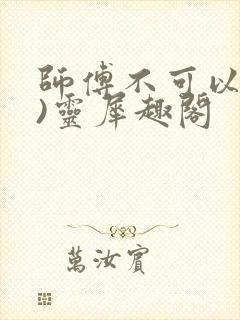 師傅不可以
)靈犀趣閣
萬汝賓